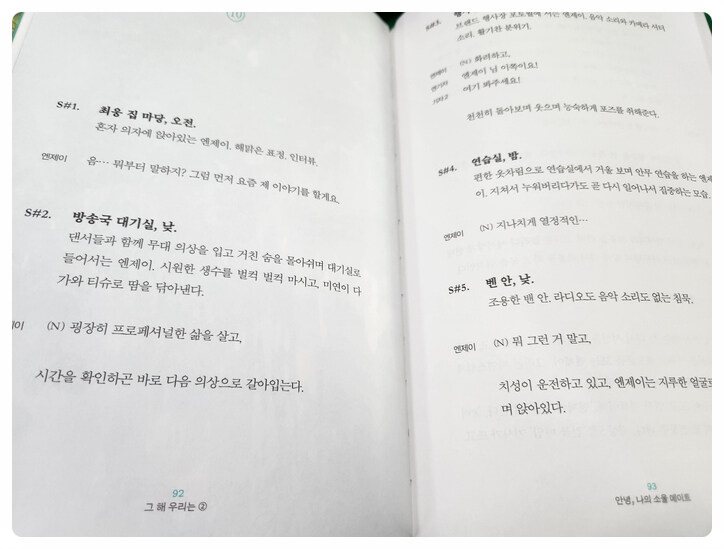 10
S#1. 최웅 집 마당, 오전.
혼자 의자에 앉아있는 엔제이. 해맑은 표정. 인터뷰.
엔제이 음… 뭐부터 말하지? 그럼 먼저 요즘 제 이야기를 할게요.
S#2. 방송국 대기실, 낮.
댄서들과 함께 무대 의상을 입고 거친 숨을 몰아쉬며 대기실로
들어서는 엔제이. 시원한 생수를 벌컥 벌컥 마시고, 미연이 다
가와 티슈로 땀을 닦아낸다.
제이 (N) 굉장히 프로페셔널한 삶을 살고,
시간을 확인하곤 바로 다음 의상으로 갈아입는다.
92
그 해 우리는 ②
S#3.
브랜드 행사장 포토월에 서는 엔제이. 음악 소리와 카메라 셔터
소리. 활기찬 분위기.
엔제이 (N) 화려하고,
엔제이 님 이쪽이요!
기자2 여기 봐주세요!
천천히 돌아보며 웃으며 능숙하게 포즈를 취해준다.
S#4. 연습실, 밤.
편한 옷차림으로 연습실에서 거울 보며 안무 연습을 하는 엔제
이. 지쳐서 누워버리다가도 곧 다시 일어나서 집중하는 모습.
엔제이 (N) 지나치게 열정적인…
S#5. 벤 안, 낮.
조용한 밴 안. 라디오도 음악 소리도 없는 침묵.
엔제이 (N) 뭐 그런 거 말고,
치성이 운전하고 있고, 엔제이는 지루한 얼굴로
며 앉아있다.
93
안녕, 나의 소울 메이트